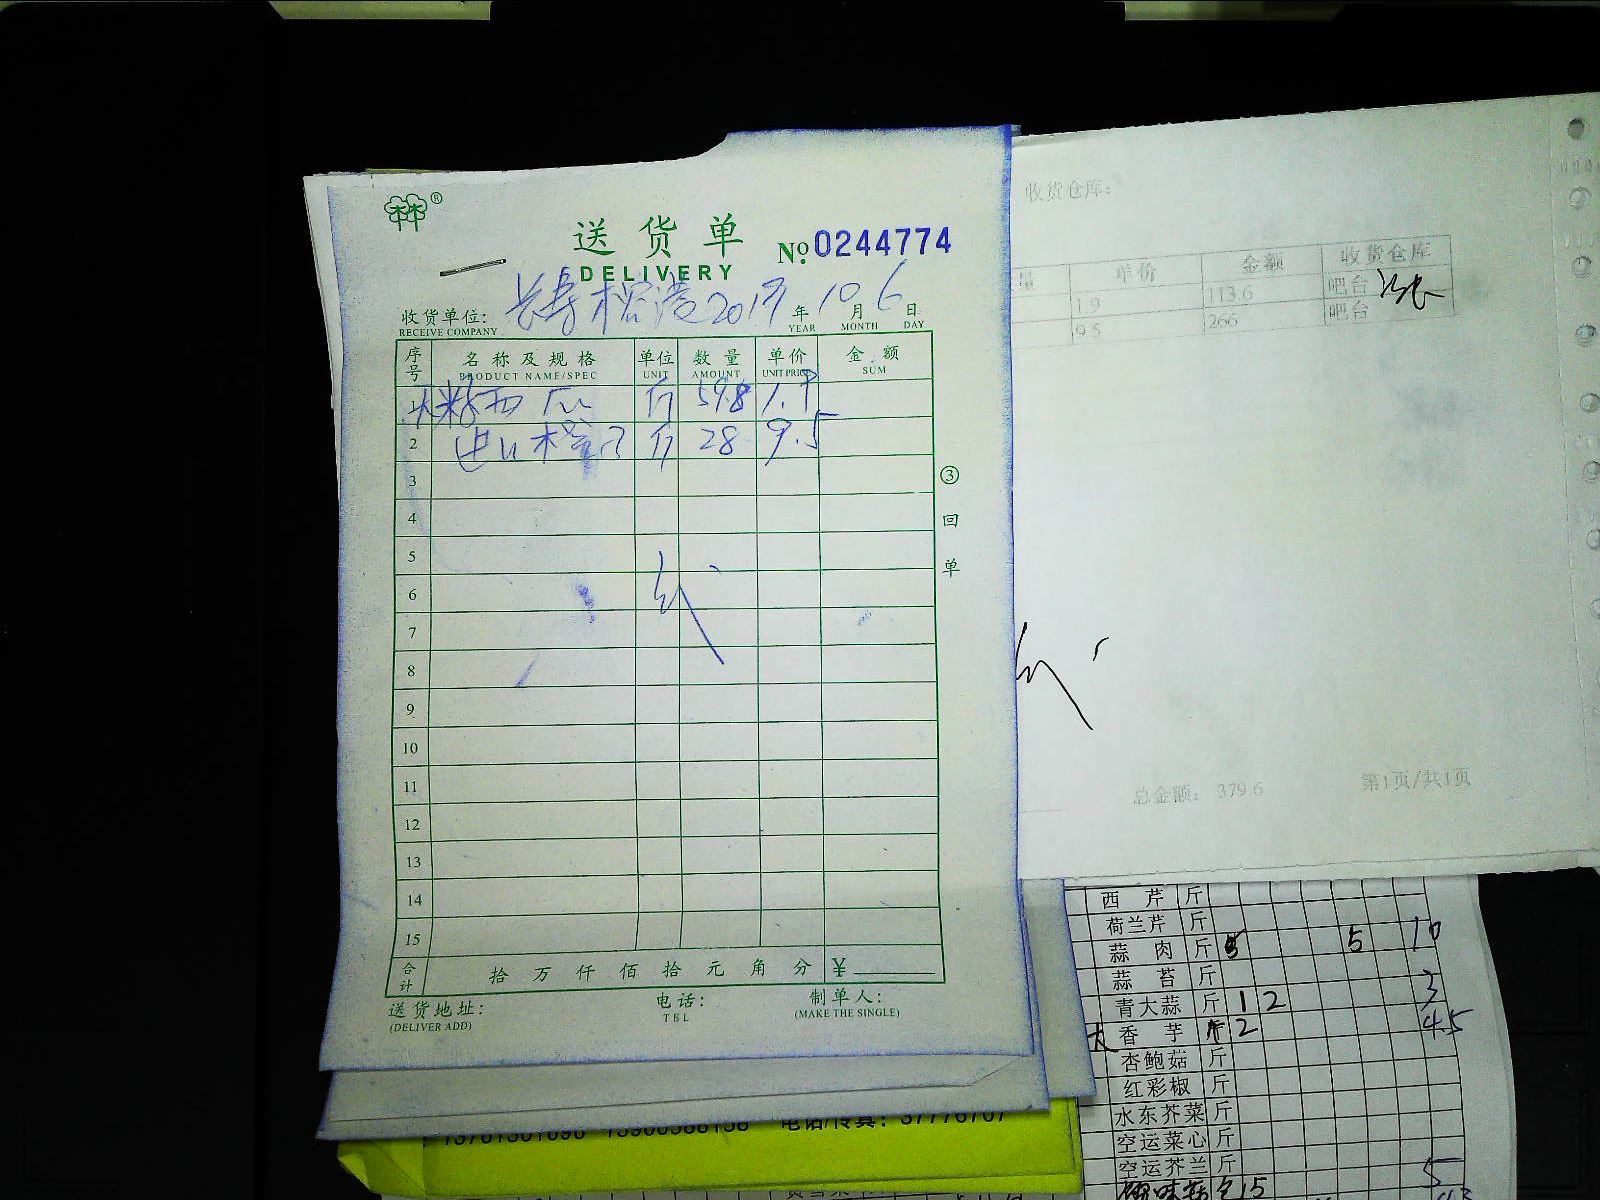 林®
送货单
No. 0244774
DELIVERY
收货单位: 2017 年 10 月 6 日
RECEIVE COMPANY YEAR MONTH DAY
序号 名称及规格 单位 数量 单价 金额
PRODUCT NAME/SPEC UNIT AMOUNT UNIT PRICE SUM
1 西瓜 斤 59.8 1.9
2 进口橙 斤 28 9.5
3
4
5
6
7
8
9
10
11
12
13
14
15
合计 拾 万 仟 佰 拾 元 角 分 ¥
送货地址: 电话: 制单人:
(DELIVER ADD) TEL (MAKE THE SINGLE)
③回单
收货仓库:
量 单价 金额 收货仓库
1.9 113.6 吧台
9.5 266 吧台
总金额: 379.6 第1页/共1页
西芹 斤
荷兰芹 斤
蒜肉 斤 5 5 10
蒜苔 斤
青大蒜 斤 1 2 3
大香芋 斤 2 45
杏鲍菇 斤
红彩椒 斤
水东芥菜 斤
空运菜心 斤
空运芥兰 斤 5
电话/传真: 37776767